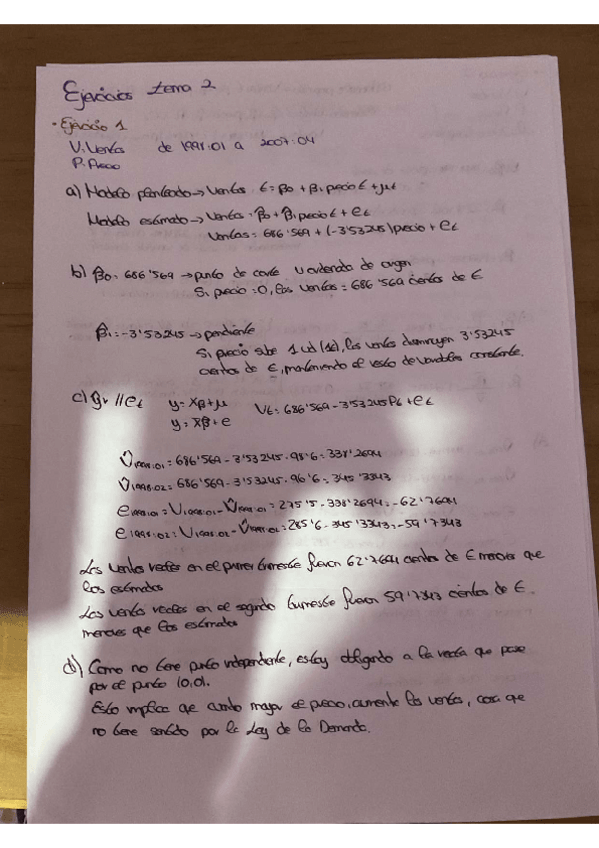 Ejercicios tema 2
· Ejercicio 1
V: Ventas de 1998:01 a 2007:04
P: Precio
a) Modelo planteado → Ventas t = β0 + β1 precio t + μt
Modelo estimado → Ventas = β̂0 + β̂1 precio t + et
Ventas = 686'569 + (-3'53245) precio + et
b) β̂0 = 686'569 → punto de corte u ordenada de origen
Si precio = 0, las ventas = 686'569 cientos de €
β̂1 = -3'53245 → pendiente
Si precio sube 1 ud (1€), las ventas disminuyen 3'53245
cientos de €, manteniendo el resto de variables constante.
c) ŷt // et y = Xβ + μ Vt = 686'569 - 3'53245 Pt + et
y = Xβ̂ + e
V̂1998:01 = 686'569 - 3'53245 · 98'6 = 338'2694
V̂1998:02 = 686'569 - 3'53245 · 96'6 = 345'3343
e1998:01 = V1998:01 - V̂1998:01 = 275'5 - 338'2694 = -62'7694
e1998:02 = V1998:02 - V̂1998:02 = 285'6 - 345'3343 = -59'7343
Las ventas reales en el primer trimestre fueron 62'7694 cientos de € menores que
las estimadas
Las ventas reales en el segundo trimestre fueron 59'7343 cientos de €
menores que las estimadas
d) Como no tiene punto independiente, estoy obligando a la recta que pase
por el punto (0,0).
Esto implica que cuanto mayor el precio, aumente las ventas, cosa que
no tiene sentido por la Ley de la Demanda.